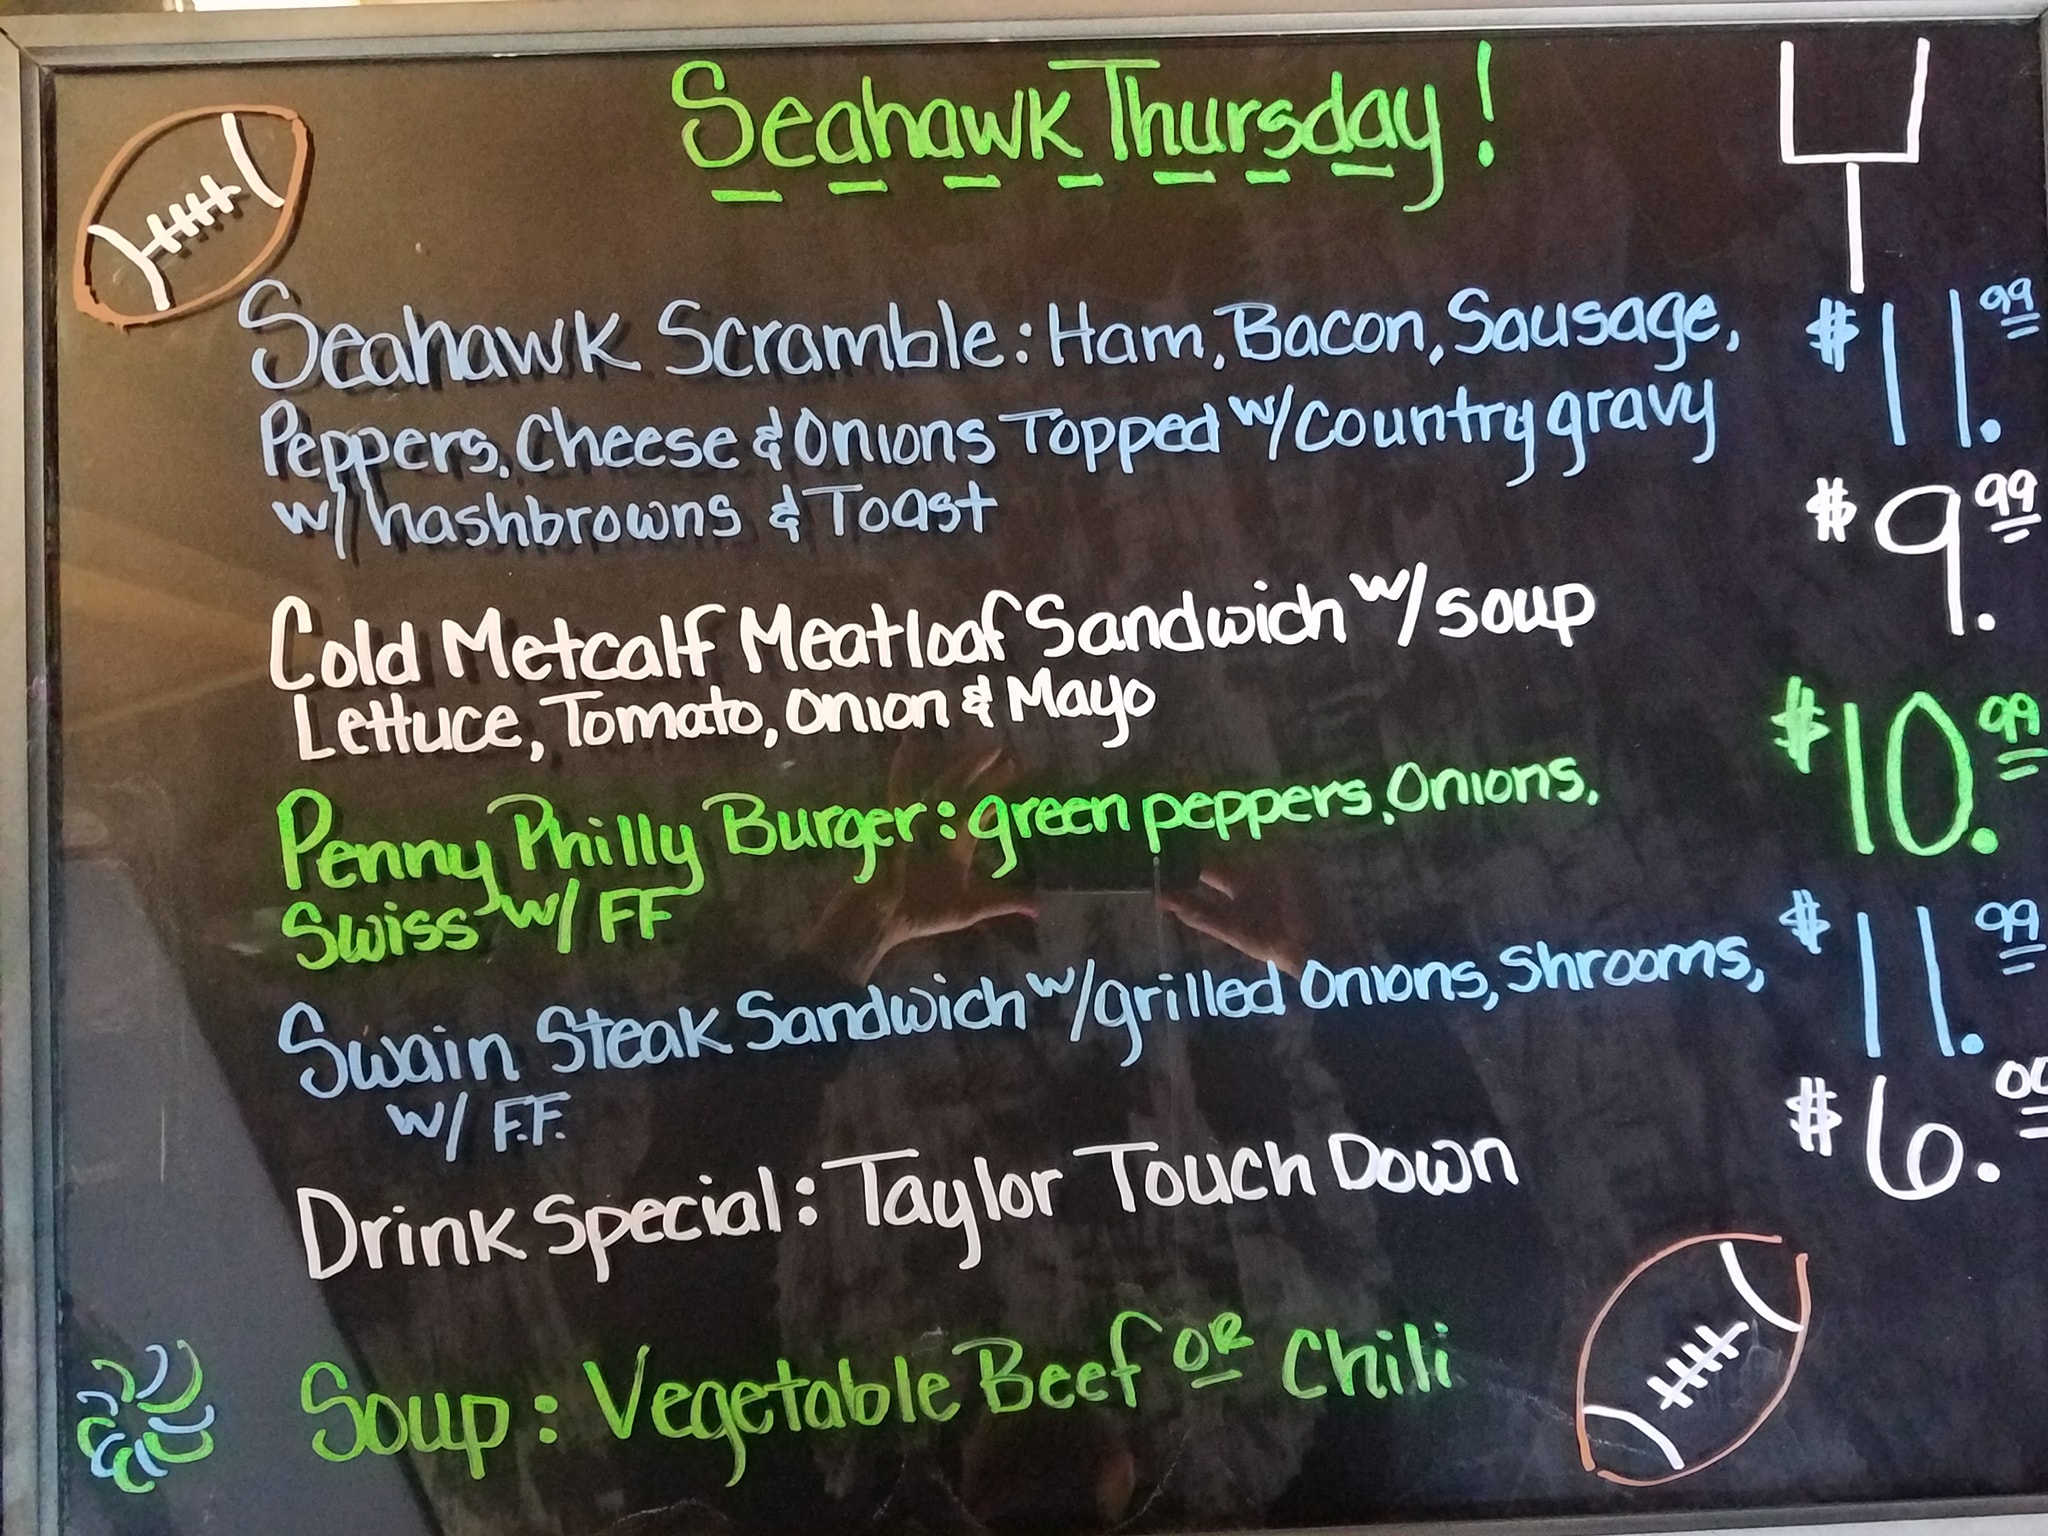 Seahawk Thursday!
Seahawk Scramble: Ham, Bacon, Sausage, $11.99
Peppers, Cheese & Onions Topped w/country gravy
w/ hashbrowns & Toast
Cold Metcalf Meatloaf Sandwich w/soup $9.99
Lettuce, Tomato, Onion & Mayo
Penny Philly Burger: green peppers, Onions, $10.99
Swiss w/ FF
Swain Steak Sandwich w/grilled Onions, Shrooms, $11.99
w/ F.F.
Drink Special: Taylor Touch Down $6.00
Soup: Vegetable Beef OR Chili